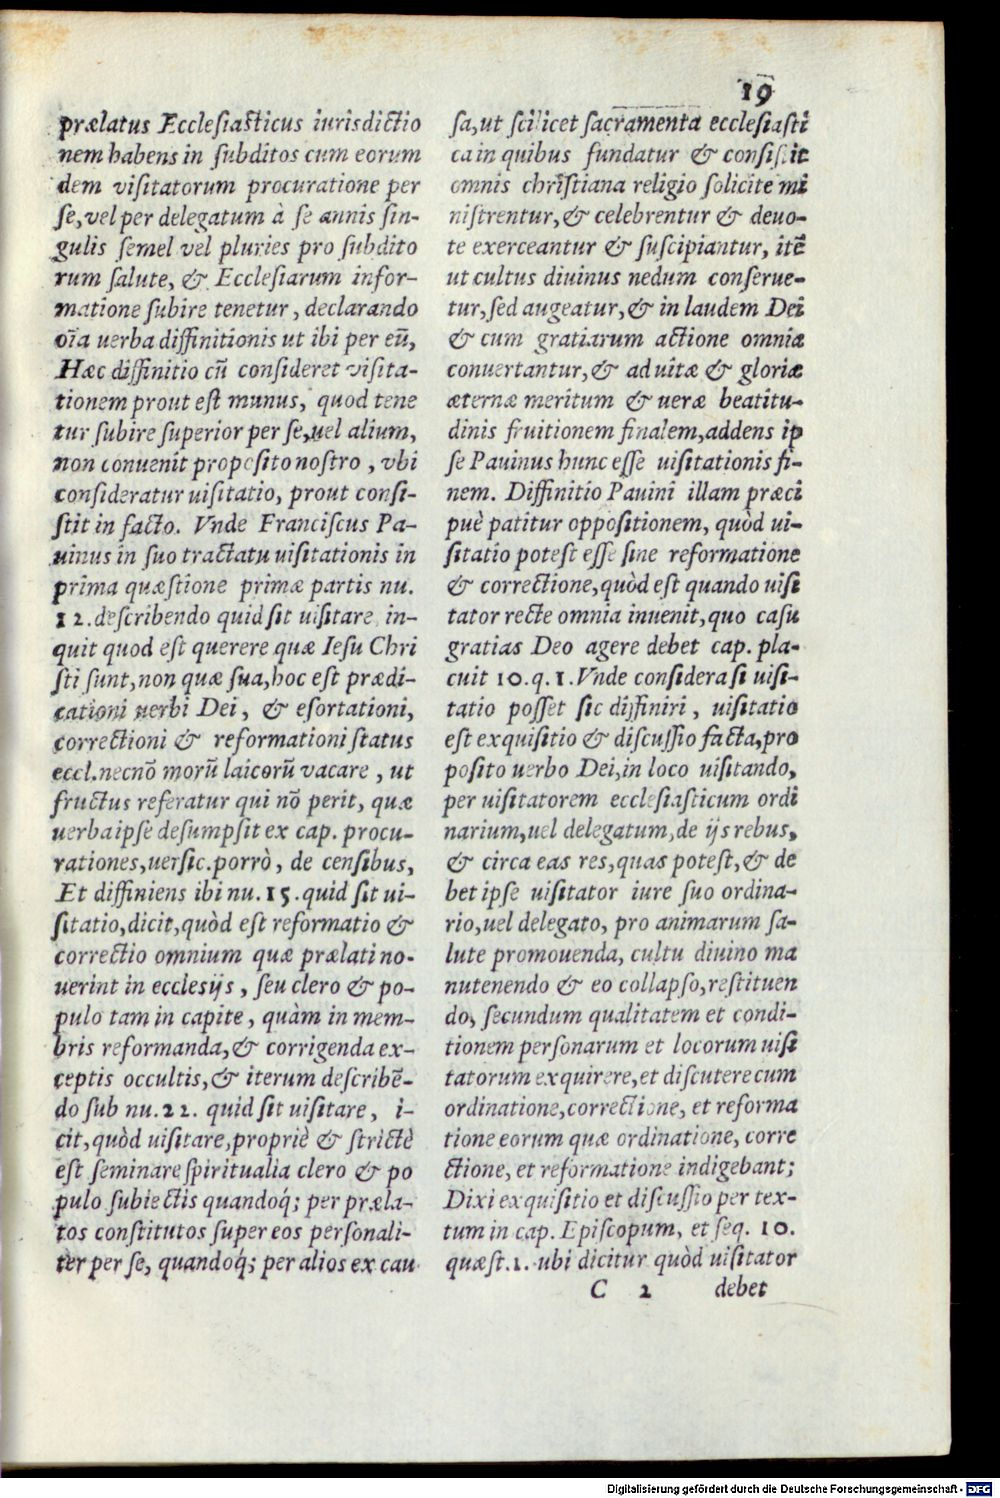 19
prælatus Ecclesiasticus iurisdictio
nem habens in subditos cum eorum
dem visitatorum procuratione per
se, vel per delegatum à se annis sin-
gulis semel vel pluries pro subdito
rum salute, & Ecclesiarum infor-
matione subire tenetur, declarando
oĩa uerba diffinitionis ut ibi per eũ,
Hæc diffinitio cũ consideret visita-
tionem prout est munus, quod tene
tur subire superior per se, uel alium,
non conuenit proposito nostro, vbi
consideratur uisitatio, prout consi-
stit in facto. Vnde Franciscus Pa-
uinus in suo tractatu uisitationis in
prima quæstione primæ partis nu.
12. describendo quid sit uisitare in-
quit quod est querere quæ Iesu Chri
sti sunt, non quæ sua, hoc est prædi-
cationi uerbi Dei, & esortationi,
correctioni & reformationi status
eccl. necnõ morũ laicorũ vacare, ut
fructus referatur qui nõ perit, quæ
uerba ipse desumpsit ex cap. procu-
rationes, uersic. porrò, de censibus,
Et diffiniens ibi nu. 15. quid sit ui-
sitatio, dicit, quòd est reformatio &
correctio omnium quæ prælati no-
uerint in ecclesijs, seu clero & po-
pulo tam in capite, quàm in mem-
bris reformanda, & corrigenda ex-
ceptis occultis, & iterum describẽ-
do sub nu. 22. quid sit uisitare, i-
cit, quòd uisitare, propriè & strictè
est seminare spiritualia clero & po
pulo subiectis quandoq́; per præla-
tos constitutos super eos personali-
ter per se, quandoq́; per alios ex cau
sa, ut scilicet sacramenta ecclesiasti
ca in quibus fundatur & consistit
omnis christiana religio solicite mi
nistrentur, & celebrentur & deuo-
te exerceantur & suscipiantur, itẽ
ut cultus diuinus nedum conserue-
tur, sed augeatur, & in laudem Dei
& cum gratiarum actione omnia
conuertantur, & ad uitæ & gloriæ
æternæ meritum & ueræ beatitu-
dinis fruitionem finalem, addens ip
se Pauinus hunc esse uisitationis fi-
nem. Diffinitio Pauini illam præci
puè patitur oppositionem, quòd ui-
sitatio potest esse sine reformatione
& correctione, quòd est quando uisi
tator recte omnia inuenit, quo casu
gratias Deo agere debet cap. pla-
cuit 10. q. 1. Vnde considerasi uisi-
tatio posset sic diffiniri, uisitatio
est exquisitio & discussio facta, pro
posito uerbo Dei, in loco uisitando,
per uisitatorem ecclesiasticum ordi
narium, uel delegatum, de ijs rebus,
& circa eas res, quas potest, & de
bet ipse uisitator iure suo ordina-
rio, uel delegato, pro animarum sa-
lute promouenda, cultu diuino ma
nutenendo & eo collapso, restituen
do, secundum qualitatem et condi-
tionem personarum et locorum uisi
tatorum exquirere, et discutere cum
ordinatione, correctione, et reforma
tione eorum quæ ordinatione, corre
ctione, et reformatione indigebant;
Dixi exquisitio et discussio per tex-
tum in cap. Episcopum, et seq. 10.
quæst. 1. ubi dicitur quòd uisitator
C 2 debet
Digitalisierung gefördert durch die Deutsche Forschungsgemeinschaft - DFG